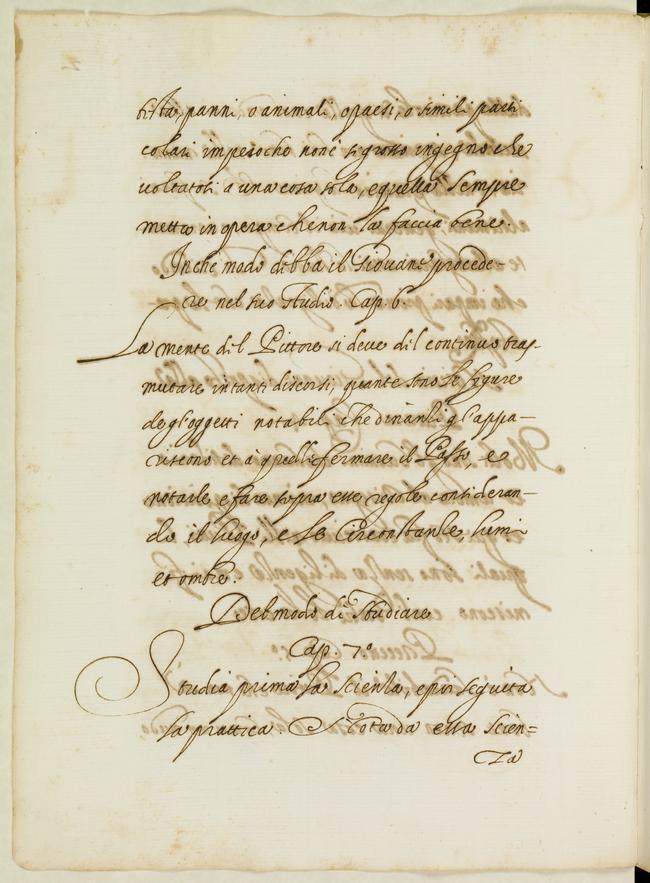 sità, panni, o animali, o paesi, o simili parti
colari imperoche non é sigrosso ingegno che
voltatosi a una cosa sola, e quella sempre
metta in opera che non la faccia bene.
In che modo debba il Giovane procede=
re nel suo studio. Cap. 6.
La mente del Pittore si deve del continuo tras-
mutare in tanti discorsi, quante sono le figure
de gl'oggetti notabili che dinanzi gl'appa-
riscono et à quelli fermare il Passo, e
notarle e fare sopra esse regole consideran-
do il luogo, e le Circonstanze lumi
et ombre.
Del modo di studiare
Cap. 7.º
Studia prima la scienza, e poi seguita
la prattica. nata da essa scien=
za